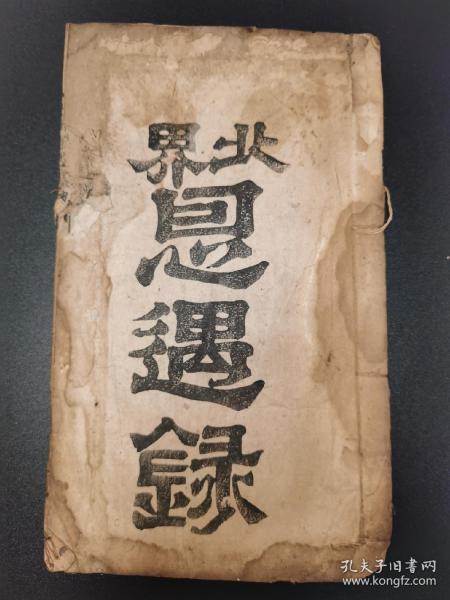 北界
恩遇録
孔夫子旧书网
www.kongfz.com